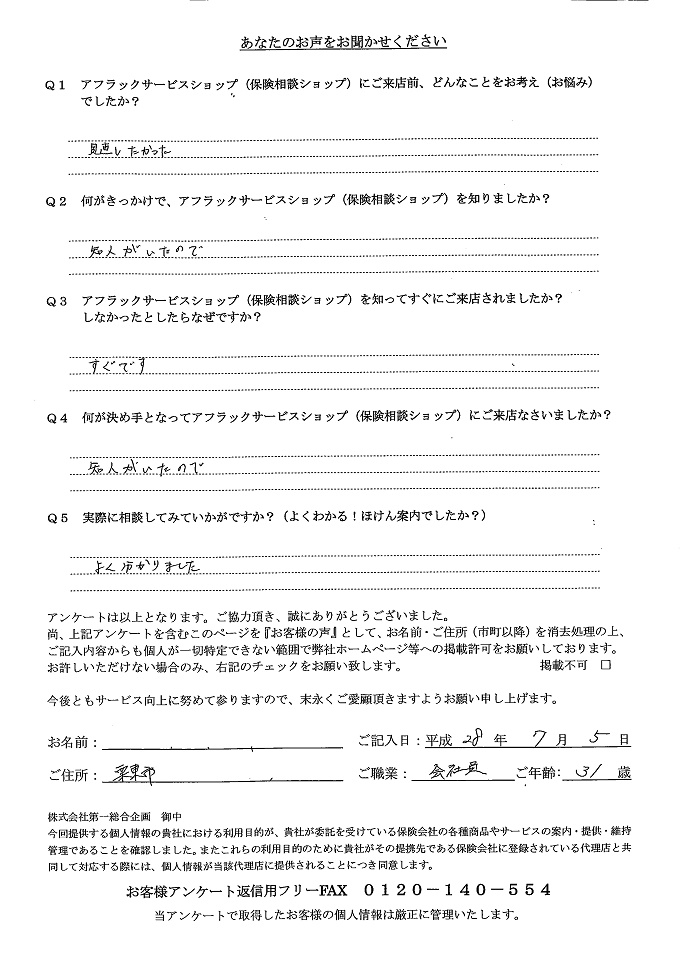 あなたのお声をお聞かせください
Q１ アフラックサービスショップ（保険相談ショップ）にご来店前、どんなことをお考え（お悩み）
でしたか？
見直したかった
Q２ 何がきっかけで、アフラックサービスショップ（保険相談ショップ）を知りましたか？
知人がいたので
Q３ アフラックサービスショップ（保険相談ショップ）を知ってすぐにご来店されましたか？
しなかったとしたらなぜですか？
すぐです
Q４ 何が決め手となってアフラックサービスショップ（保険相談ショップ）にご来店なさいましたか？
知人がいたので
Q５ 実際に相談してみていかがですか？（よくわかる！ほけん案内でしたか？）
よく分かりました
アンケートは以上となります。ご協力頂き、誠にありがとうございました。
尚、上記アンケートを含むこのページを『お客様の声』として、お名前・ご住所（市町以降）を消去処理の上、
ご記入内容からも個人が一切特定できない範囲で弊社ホームページ等への掲載許可をお願いしております。
お許しいただけない場合のみ、右記のチェックをお願い致します。 掲載不可 □
今後ともサービス向上に努めて参りますので、末永くご愛顧頂きますようお願い申し上げます。
お名前： ご記入日：平成 28 年 7 月 5 日
ご住所： 栗東市 ご職業： 会社員 ご年齢： 31 歳
株式会社第一総合企画 御中
今回提供する個人情報の貴社における利用目的が、貴社が委託を受けている保険会社の各種商品やサービスの案内・提供・維持
管理であることを確認しました。またこれらの利用目的のために貴社がその提携先である保険会社に登録されている代理店と共
同して対応する際には、個人情報が当該代理店に提供されることにつき同意します。
お客様アンケート返信用フリーFAX ０１２０－１４０－５５４
当アンケートで取得したお客様の個人情報は厳正に管理いたします。